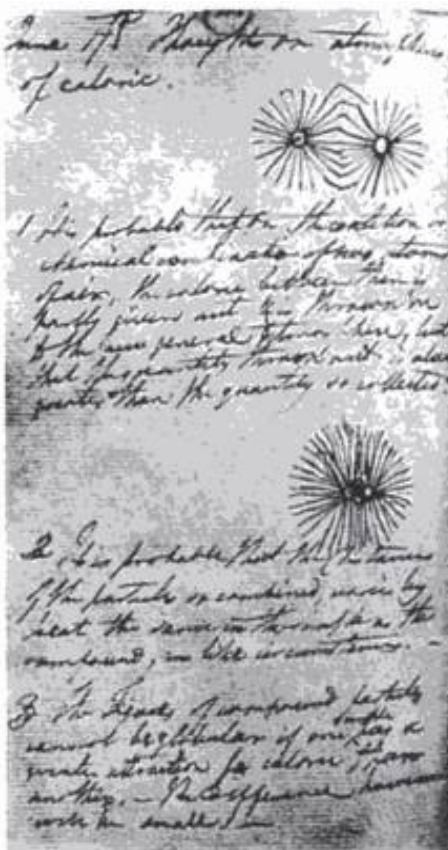 June 17th Thoughts on atmospheres
of caloric.
1 It is probable that on the
chemical combination of two atoms
of air, the caloric between them is
partly given out & is thrown on
to the new general atmosphere, but
that the quantity thrown out is
greater than the quantity so collected
2 It is probable that the distances
of the particles so combined, varies by
heat the same in the
compound, in like circumstances. —
3 The of compound particles
cannot be globular if one has a
greater attraction for caloric than
another. — The difference however
must be small. —